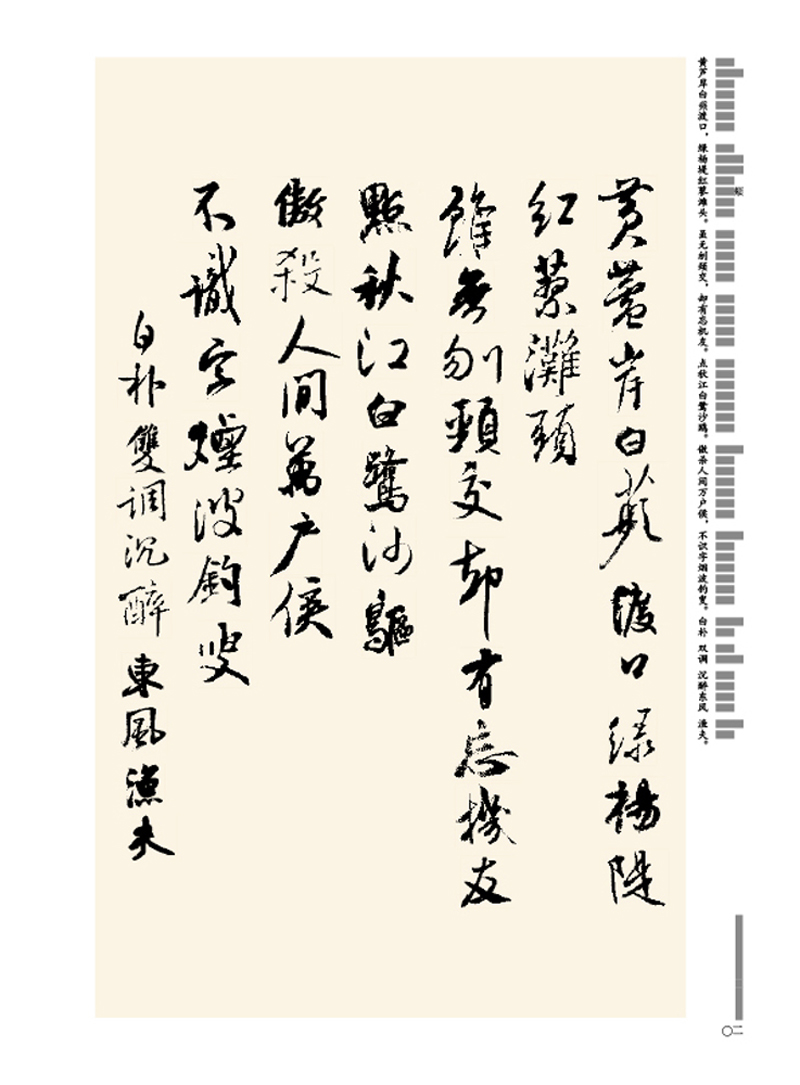 黄蘆岸白蘋渡口绿楊隄
紅蓼灘頭
雖無刎頸交却有忘機友
點秋江白鷺沙鷗
傲殺人間萬户侯
不識字煙波釣叟
白朴雙調沉醉東風漁夫
黄芦岸白蘋渡口，绿杨堤红蓼滩头。虽无刎颈交，却有忘机友。点秋江白鹭沙鸥。傲杀人间万户侯，不识字烟波钓叟。白朴 双调 沉醉东风 渔夫。
〇二